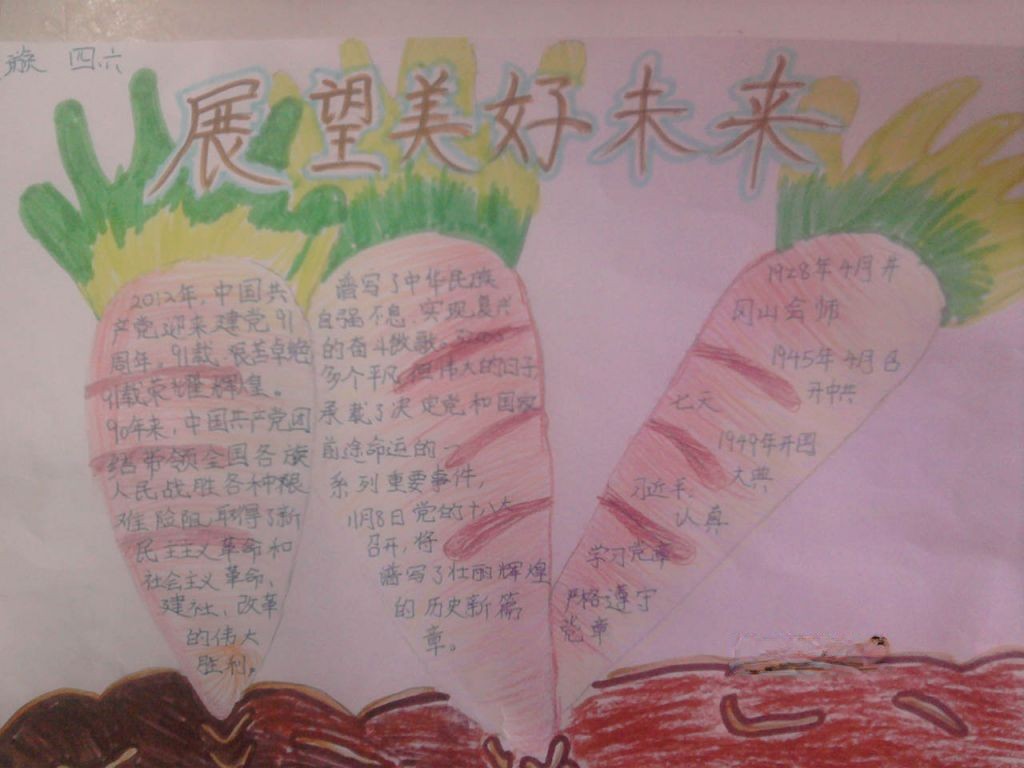 四六
展望美好未来
2012年，中国共
产党迎来建党91
周年。91载艰苦卓绝
91载荣耀辉煌。
90年来，中国共产党团
结带领全国各族
人民战胜各种艰
难险阻，取得了新
民主主义革命和
社会主义革命、
建社、改革
的伟大
胜利。
谱写了中华民族
自强不息，实现复兴
的奋斗微歌。
多个平凡但伟大的日子
承载了决定党和国家
前途命运的一
系列重要事件，
11月8日党的十八大
召开，将
谱写了壮丽辉煌
的历史新篇
章。
1928年4月井
冈山会师
1945年4月召
开中共
七大
1949年开国
大典
习近平：
认真
学习党章
严格遵守
党章